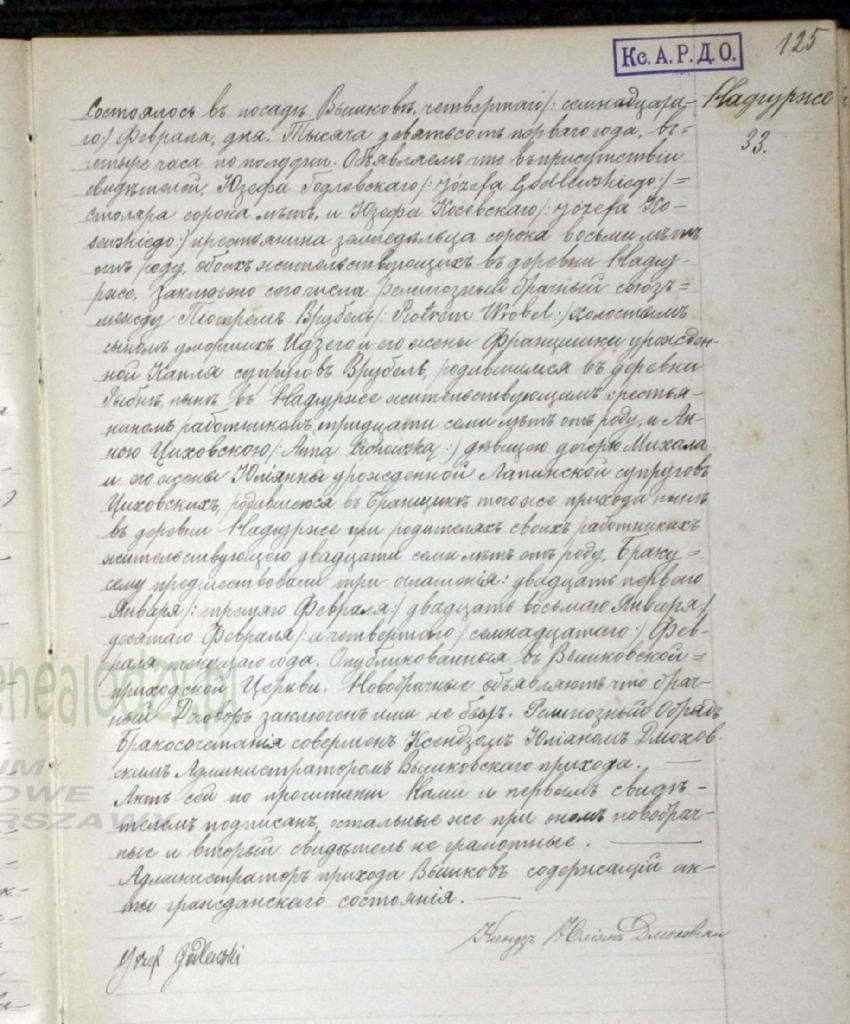 125
Кс. А. Р. Д. О.
Надгурже
33.
Состоялось въ посадѣ Вышковѣ, четвертаго /: семнадцата-
го :/ Февраля, дня. Тысяча девятьсотъ перваго года, въ
четыре часа по полудни. Объявляемъ что въ присутствіи
свидѣтелей, Юзефа Годлевскаго /: Józefa Godlewskiego :/ =
столяра сорока лѣтъ, и Юзефа Косевскаго /: Józefa Ko-
sewskiego :/ крестьянина земледѣльца сорока восьми лѣтъ
отъ роду, обоихъ жительствующихъ въ деревни Надгу-
рже. Заключено сего числа религіозный брачный союзъ =
между Піотремъ Врубель /: Piotrem Wróbel :/ холостымъ
сыномъ умершихъ Идзего и его жены Францишки урожден-
ной Капля супруговъ Врубель, родившимся въ деревни
нынѣ въ Надгурже жительствующимъ крестья-
ниномъ работникомъ, тридцати семи лѣтъ отъ роду, и Ан-
ною Циховскою /: Anną Cichowską :/ дѣвицею дочерю Михала
и его жены Юліянны урожденной Лапинской супруговъ
Циховскихъ, родившеюся въ Бранщикѣ того же прихода нынѣ
въ деревни Надгурже при родителяхъ своихъ работникахъ
жительствующею двадцати семи лѣтъ отъ роду. Браку =
сему предшествовали три оглашенія: двадцать перваго
Января /: третяго Февраля :/ двадцать восьмаго Января /:
десятаго Февраля :/ и четвертаго /: семнадцатаго :/ Фев-
раля текущаго года. Опубликованныя въ Вышковской =
приходской Церкви. Новобрачные объявляютъ что брач-
ный Договоръ заключенъ ими не былъ. Религіозный Обрядъ
Бракосочетанія совершенъ Ксендзомъ Юліаномъ Дмохов-
скимъ Администраторомъ Вышковскаго прихода. —
Актъ сей по прочитаніи Нами и первымъ свидѣ-
телемъ подписанъ, остальные же при ономъ новобрач-
ные и вторый свидѣтель не грамотные. —
Администраторъ прихода Вышковъ содержащій ак-
ты гражданскаго состоянія. —
Ксендзъ Юліянъ Дмоховски
Józef Godlewski
nealodzy.pl
UM
OWE
RSZAWY